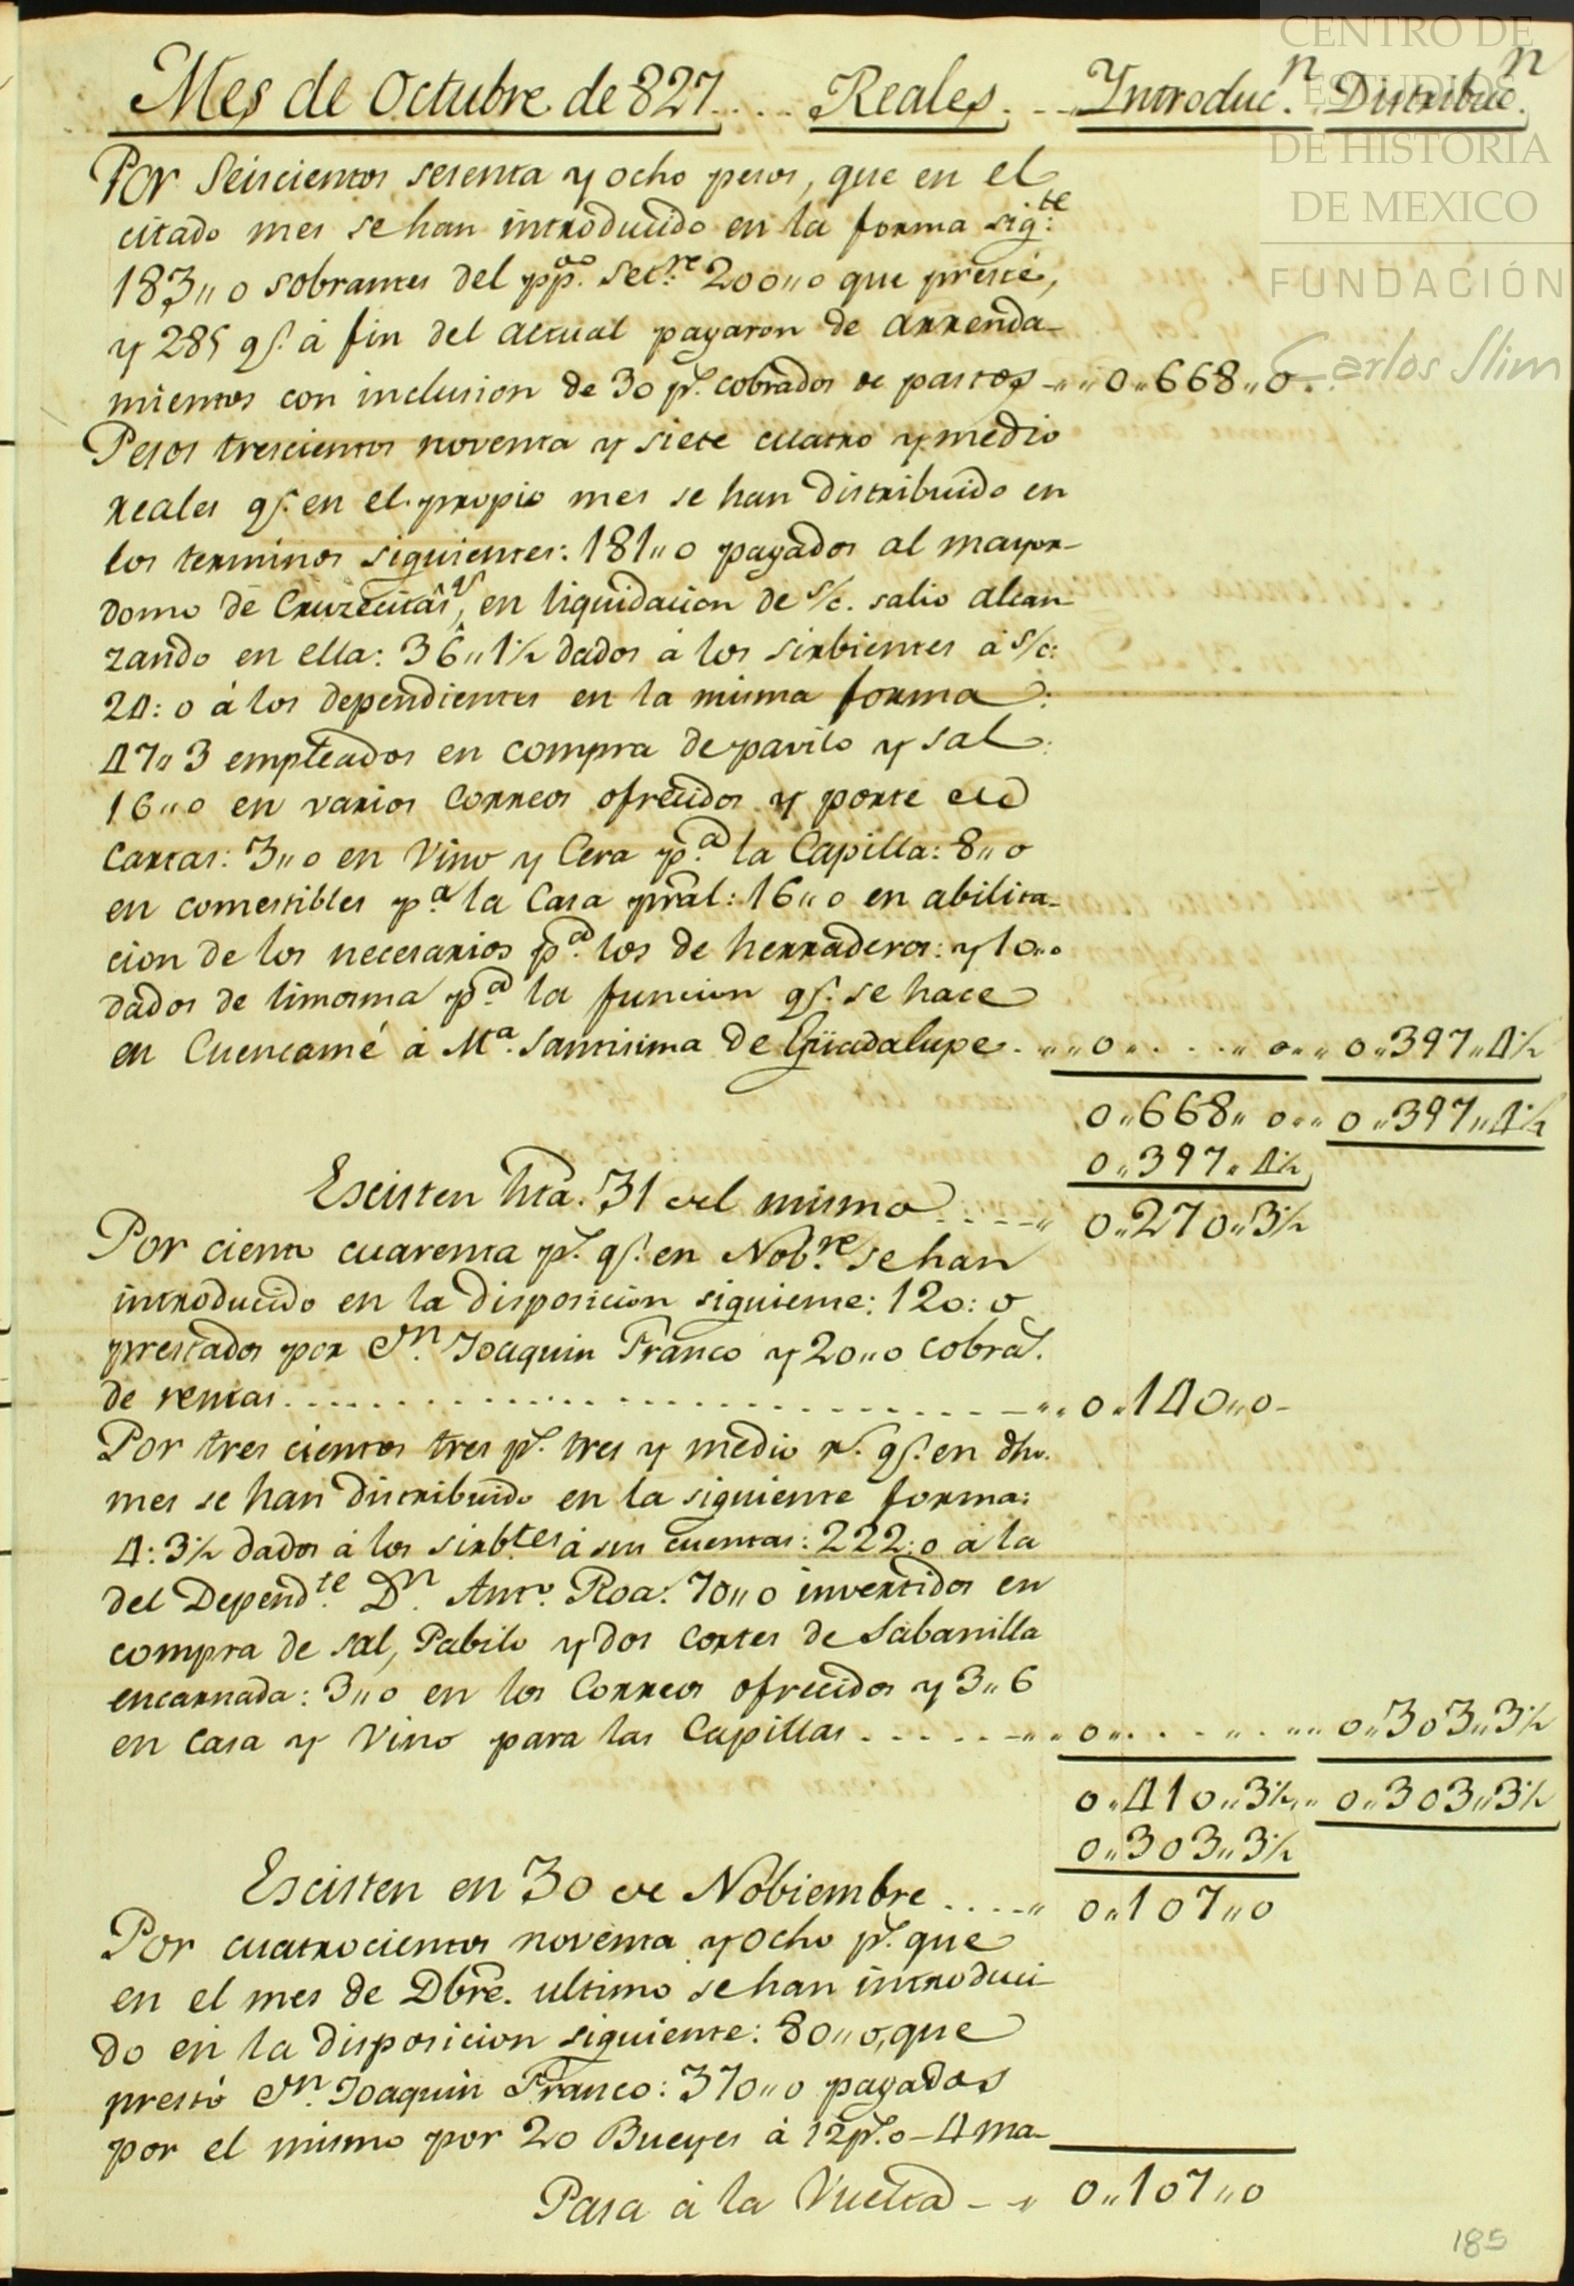 CENTRO DE
ESTUDIOS
DE HISTORIA
DE MEXICO
FUNDACIÓN
Carlos Slim
Mes de Octubre de 827.... Reales. .. Introduc.n Distribuc.n
Por Seiscientos sesenta y ocho pesos, que en el
citado mes se han introducido en la forma sig.te
183,, 0 sobrantes del pp.do Set.re 200,,0 que presté,
y 285 qs. á fin del actual pagaron de arrenda-
mientos con inclusion de 30 ps. cobrados de pastos -,, 0,,668,,0.
Pesos trescientos noventa y siete cuatro y medio
reales qs. en el propio mes se han distribuido en
los terminos siguientes: 181,,0 pagados al mayor-
domo de Cruzecitas, qs en liquidacion de s/c. salio alcan
zando en ella: 36,,1½ dados á los sirbientes á s/c:
24: 0 á los dependientes en la misma forma:
47,,3 empleados en compra de pavilo y sal:
16,,0 en varios Correos ofrecidos y porte de
Cartas: 3,,0 en Vino y Cera p.a la Capilla: 8,,0
en comestibles p.a la Casa pral: 16,,0 en abilita-
cion de los necesarios p.a los de herraderos: y 10,,0
dados de limosna p.a la funcion qs. se hace
en Cuencamé á M.a Santisima de Guadalupe. ,,0,,. . . ,,0,,,, 0,,397,,4½
0,,668,, 0,,,, 0,,397,,4½
0,,397,,4½
Escisten hta. 31 del mismo . . . . -,, 0,,270,,3½
Por ciento cuarenta ps. qs. en Nob.re se han
introducido en la disposicion siguiente: 120: 0
prestados por Dn. Joaquin Franco y 20,,0 cobras.
de rentas. . . . . . . . . . . . . . . . . . . . -,, 0,,140,,0-
Por tres cientos tres ps. tres y medio rs. qs. en dho.
mes se han distribuido en la siguiente forma:
4: 3½ dados á los sirb.tes á sus cuentas: 222: 0 á la
del Depend.te Dn. Anto. Roa: 70,,0 invertidos en
compra de sal, Pabilo y dos cortes de Sabanilla
encarnada: 3,,0 en los Correos ofrecidos y 3,,6
en Casa y Vino para las Capillas. . . . . -,, 0,,. . ,, . ,,,, 0,,303,,3½
0,,410,,3½,,,, 0,,303,,3½
0,,303,,3½
Escisten en 30 de Nobiembre . . . . -,, 0,,107,,0
Por cuatrocientos noventa y ocho ps. que
en el mes de Dbre. ultimo se han introduci-
do en la disposicion siguiente: 80,,0, que
prestó Dn. Joaquin Franco: 370,,0 pagados
por el mismo por 20 Bueyes á 12 ps. 0 - 4 ma-
Pasa á la Vuelta - ,, 0,,107,,0
185